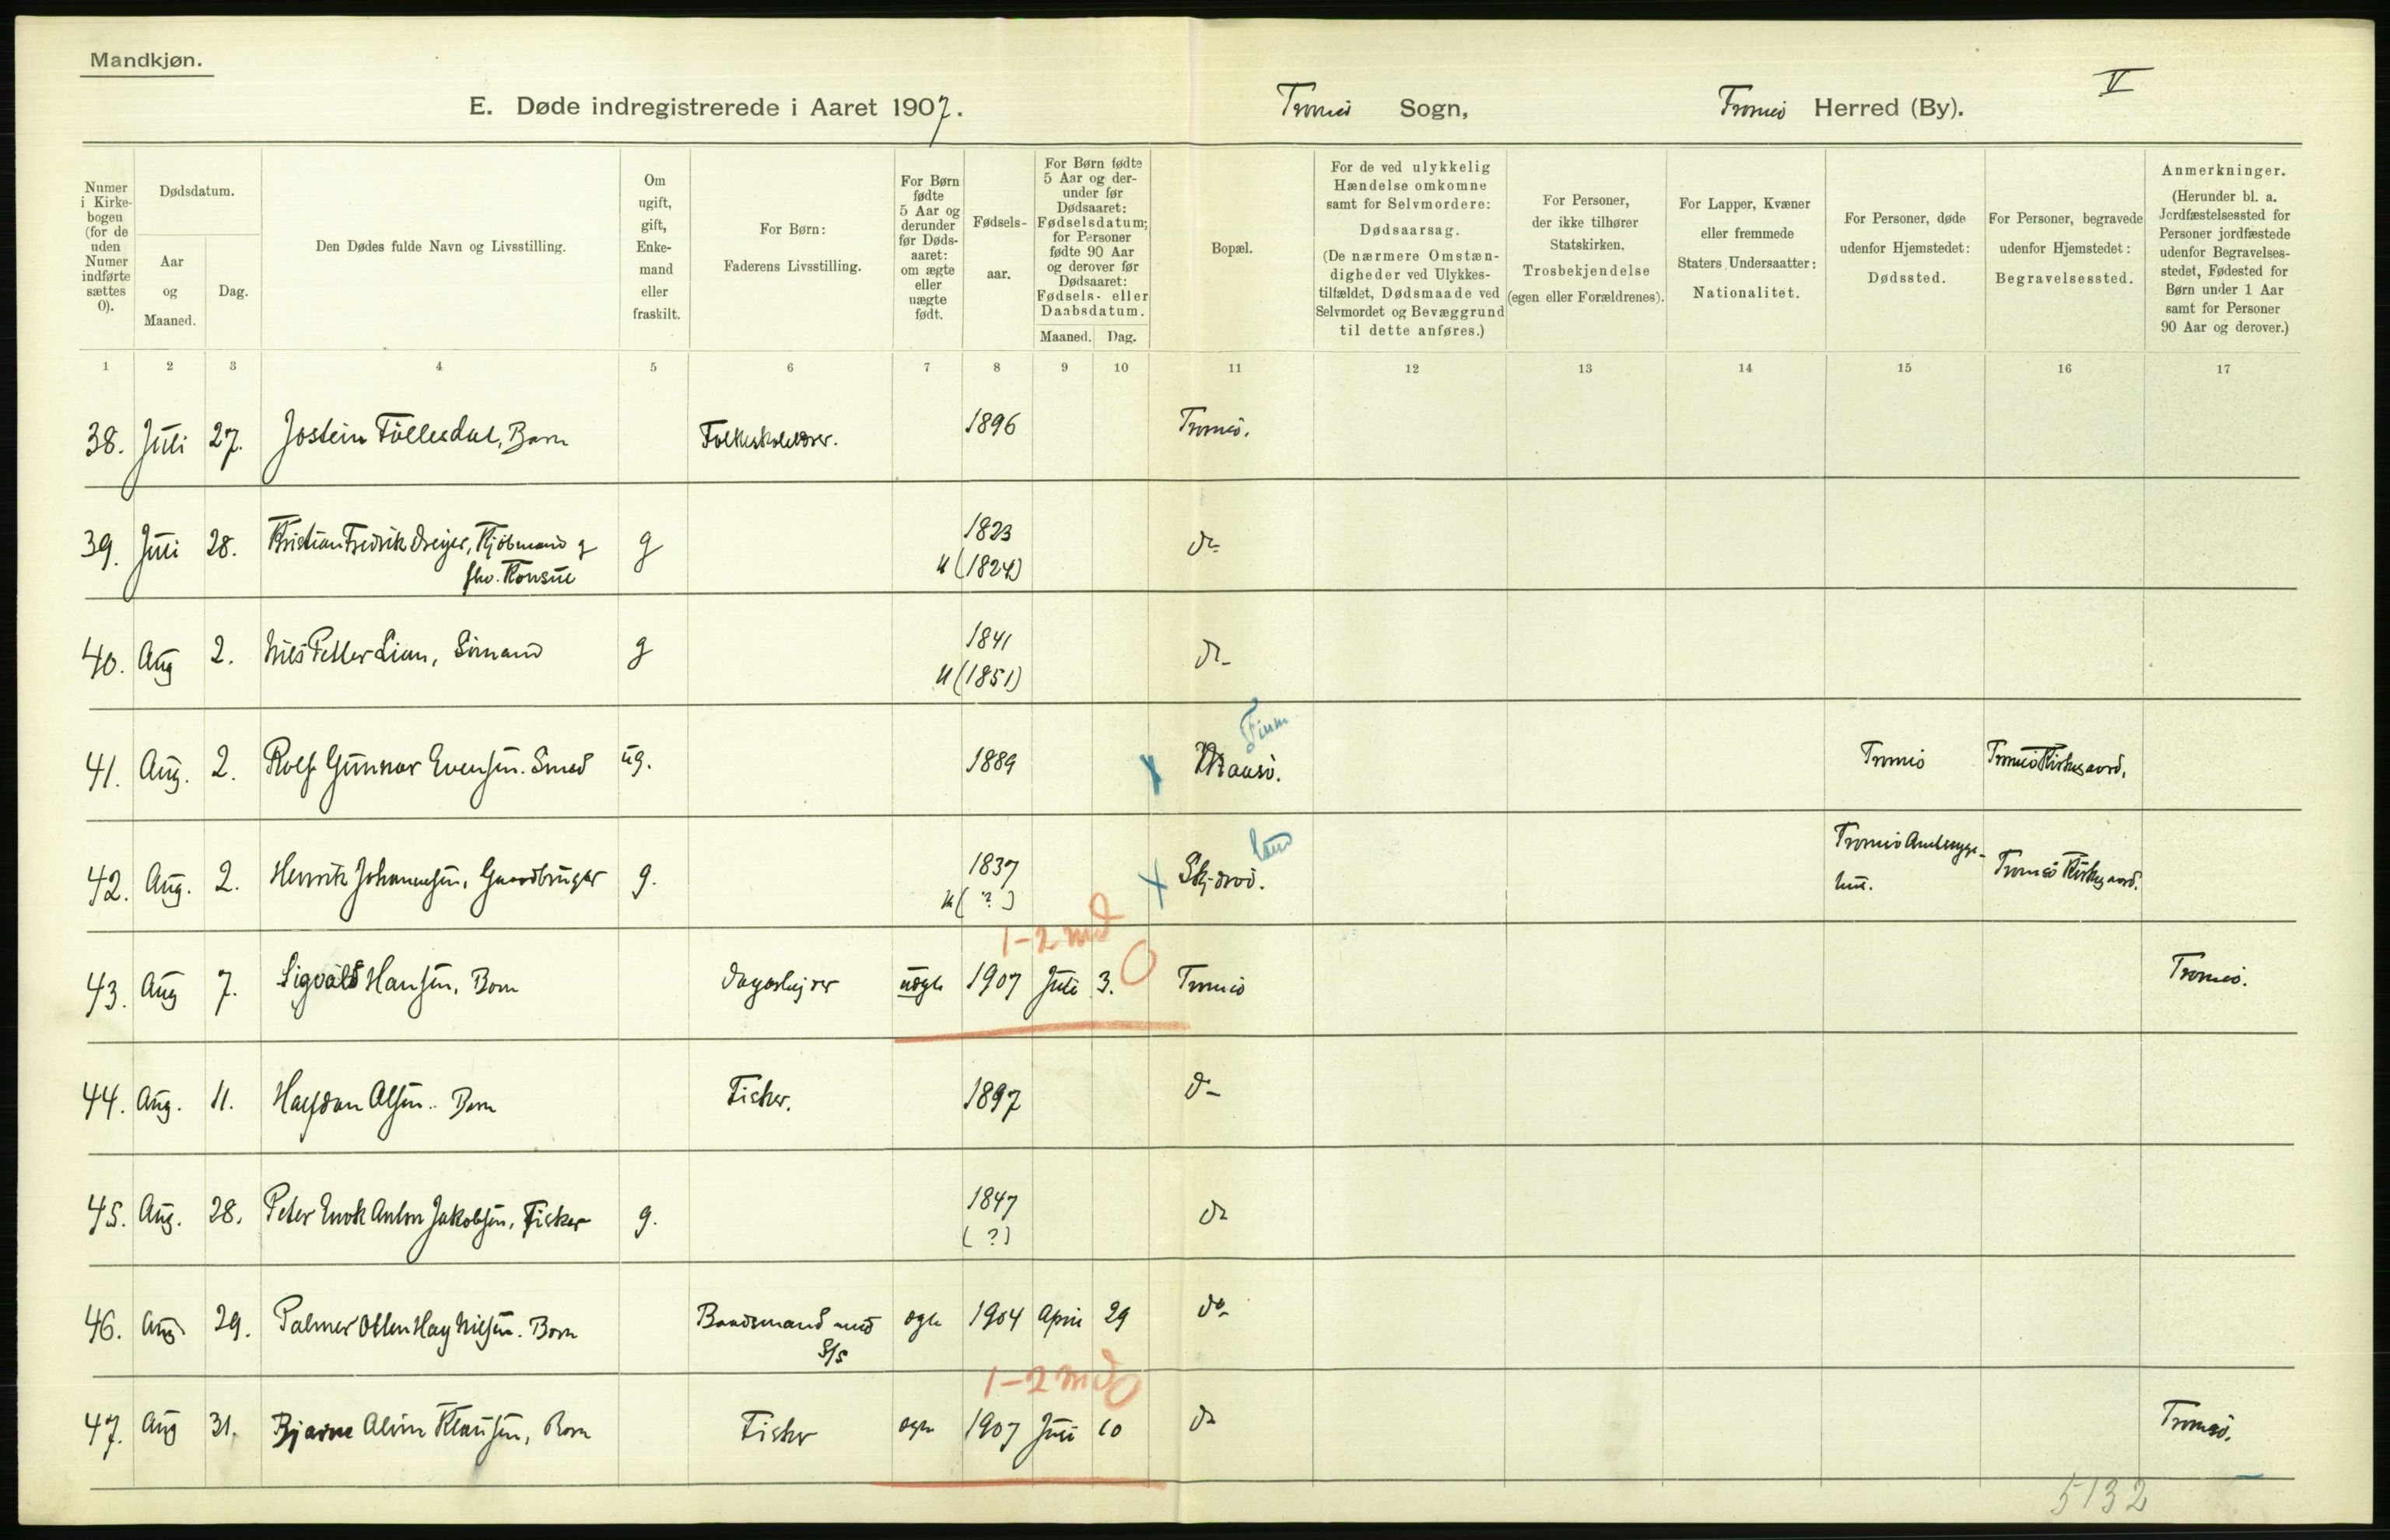 Mandkjøn.
V
E. Døde indregistrerede i Aaret 1907. Tromsö Sogn, Tromsö Herred (By).
Numer i Kirkebogen (for de uden Numer indførte sættes 0).
Dødsdatum.
Aar og Maaned.
Dag.
Den Dødes fulde Navn og Livsstilling.
Om ugift, gift, Enkemand eller fraskilt.
For Børn: Faderens Livsstilling.
For Børn fødte 5 Aar og derunder før Dødsaaret: om ægte eller uægte født.
Fødselsaar.
For Børn fødte 5 Aar og derunder før Dødsaaret: Fødselsdatum; for Personer fødte 90 Aar og derover før Dødsaaret: Fødsels- eller Daabsdatum.
Maaned. Dag.
Bopæl.
For de ved ulykkelig Hændelse omkomne samt for Selvmordere: Dødsaarsag. (De nærmere Omstændigheder ved Ulykkestilfældet, Dødsmaade ved Selvmordet og Bevæggrund til dette anføres.)
For Personer, der ikke tilhører Statskirken, Trosbekjendelse (egen eller Forældrenes).
For Lapper, Kvæner eller fremmede Staters Undersaatter: Nationalitet.
For Personer, døde udenfor Hjemstedet: Dødssted.
For Personer, begravede udenfor Hjemstedet: Begravelsessted.
Anmerkninger. (Herunder bl. a. Jordfæstelsessted for Personer jordfæstede udenfor Begravelsesstedet, Fødested for Børn under 1 Aar samt for Personer 90 Aar og derover.)
1 2 3 4 5 6 7 8 9 10 11 12 13 14 15 16 17
38. Juli 27. Jostein Föllesdal, Barn Folkeskolelærer. 1896 Tromsö.
39. Juli 28. Kristian Fredrik Dreyer, Kjöbmand g 1823 do
fhv. Konsul (1824)
40. Aug 2. Nils Petter Lian, Sömand g 1841 do
(1851)
Finm
41. Aug. 2. Rolf Gunnar Evensen. Smed ug. 1889 Maasö. Tromsö Tromsö Kirkegaard.
42. Aug. 2. Henrik Johannesen, Gaardbruger g. 1837 Skjervö. Tromsö Tromsö Kirkegaard.
( ? )
1-2 md
43. Aug 7. Sigvald Hansen, Barn Dagarbejder uægte 1907 Juli 3. 0 Tromsö Tromsö.
44. Aug. 11. Halfdan Olsen. Barn Fisker. 1897 do
45. Aug. 28. Peter Enok Anton Jakobsen, Fisker g. 1847 do
( ? )
46. Aug 29. Palmer Nilsen. Barn Baadsmand med ægte 1904 April 29 do
S/S
1-2 md 0
47. Aug 31. Bjarne Alvin Klausen, Barn Fisker ægte 1907 Juli 10 do Tromsö.
5132